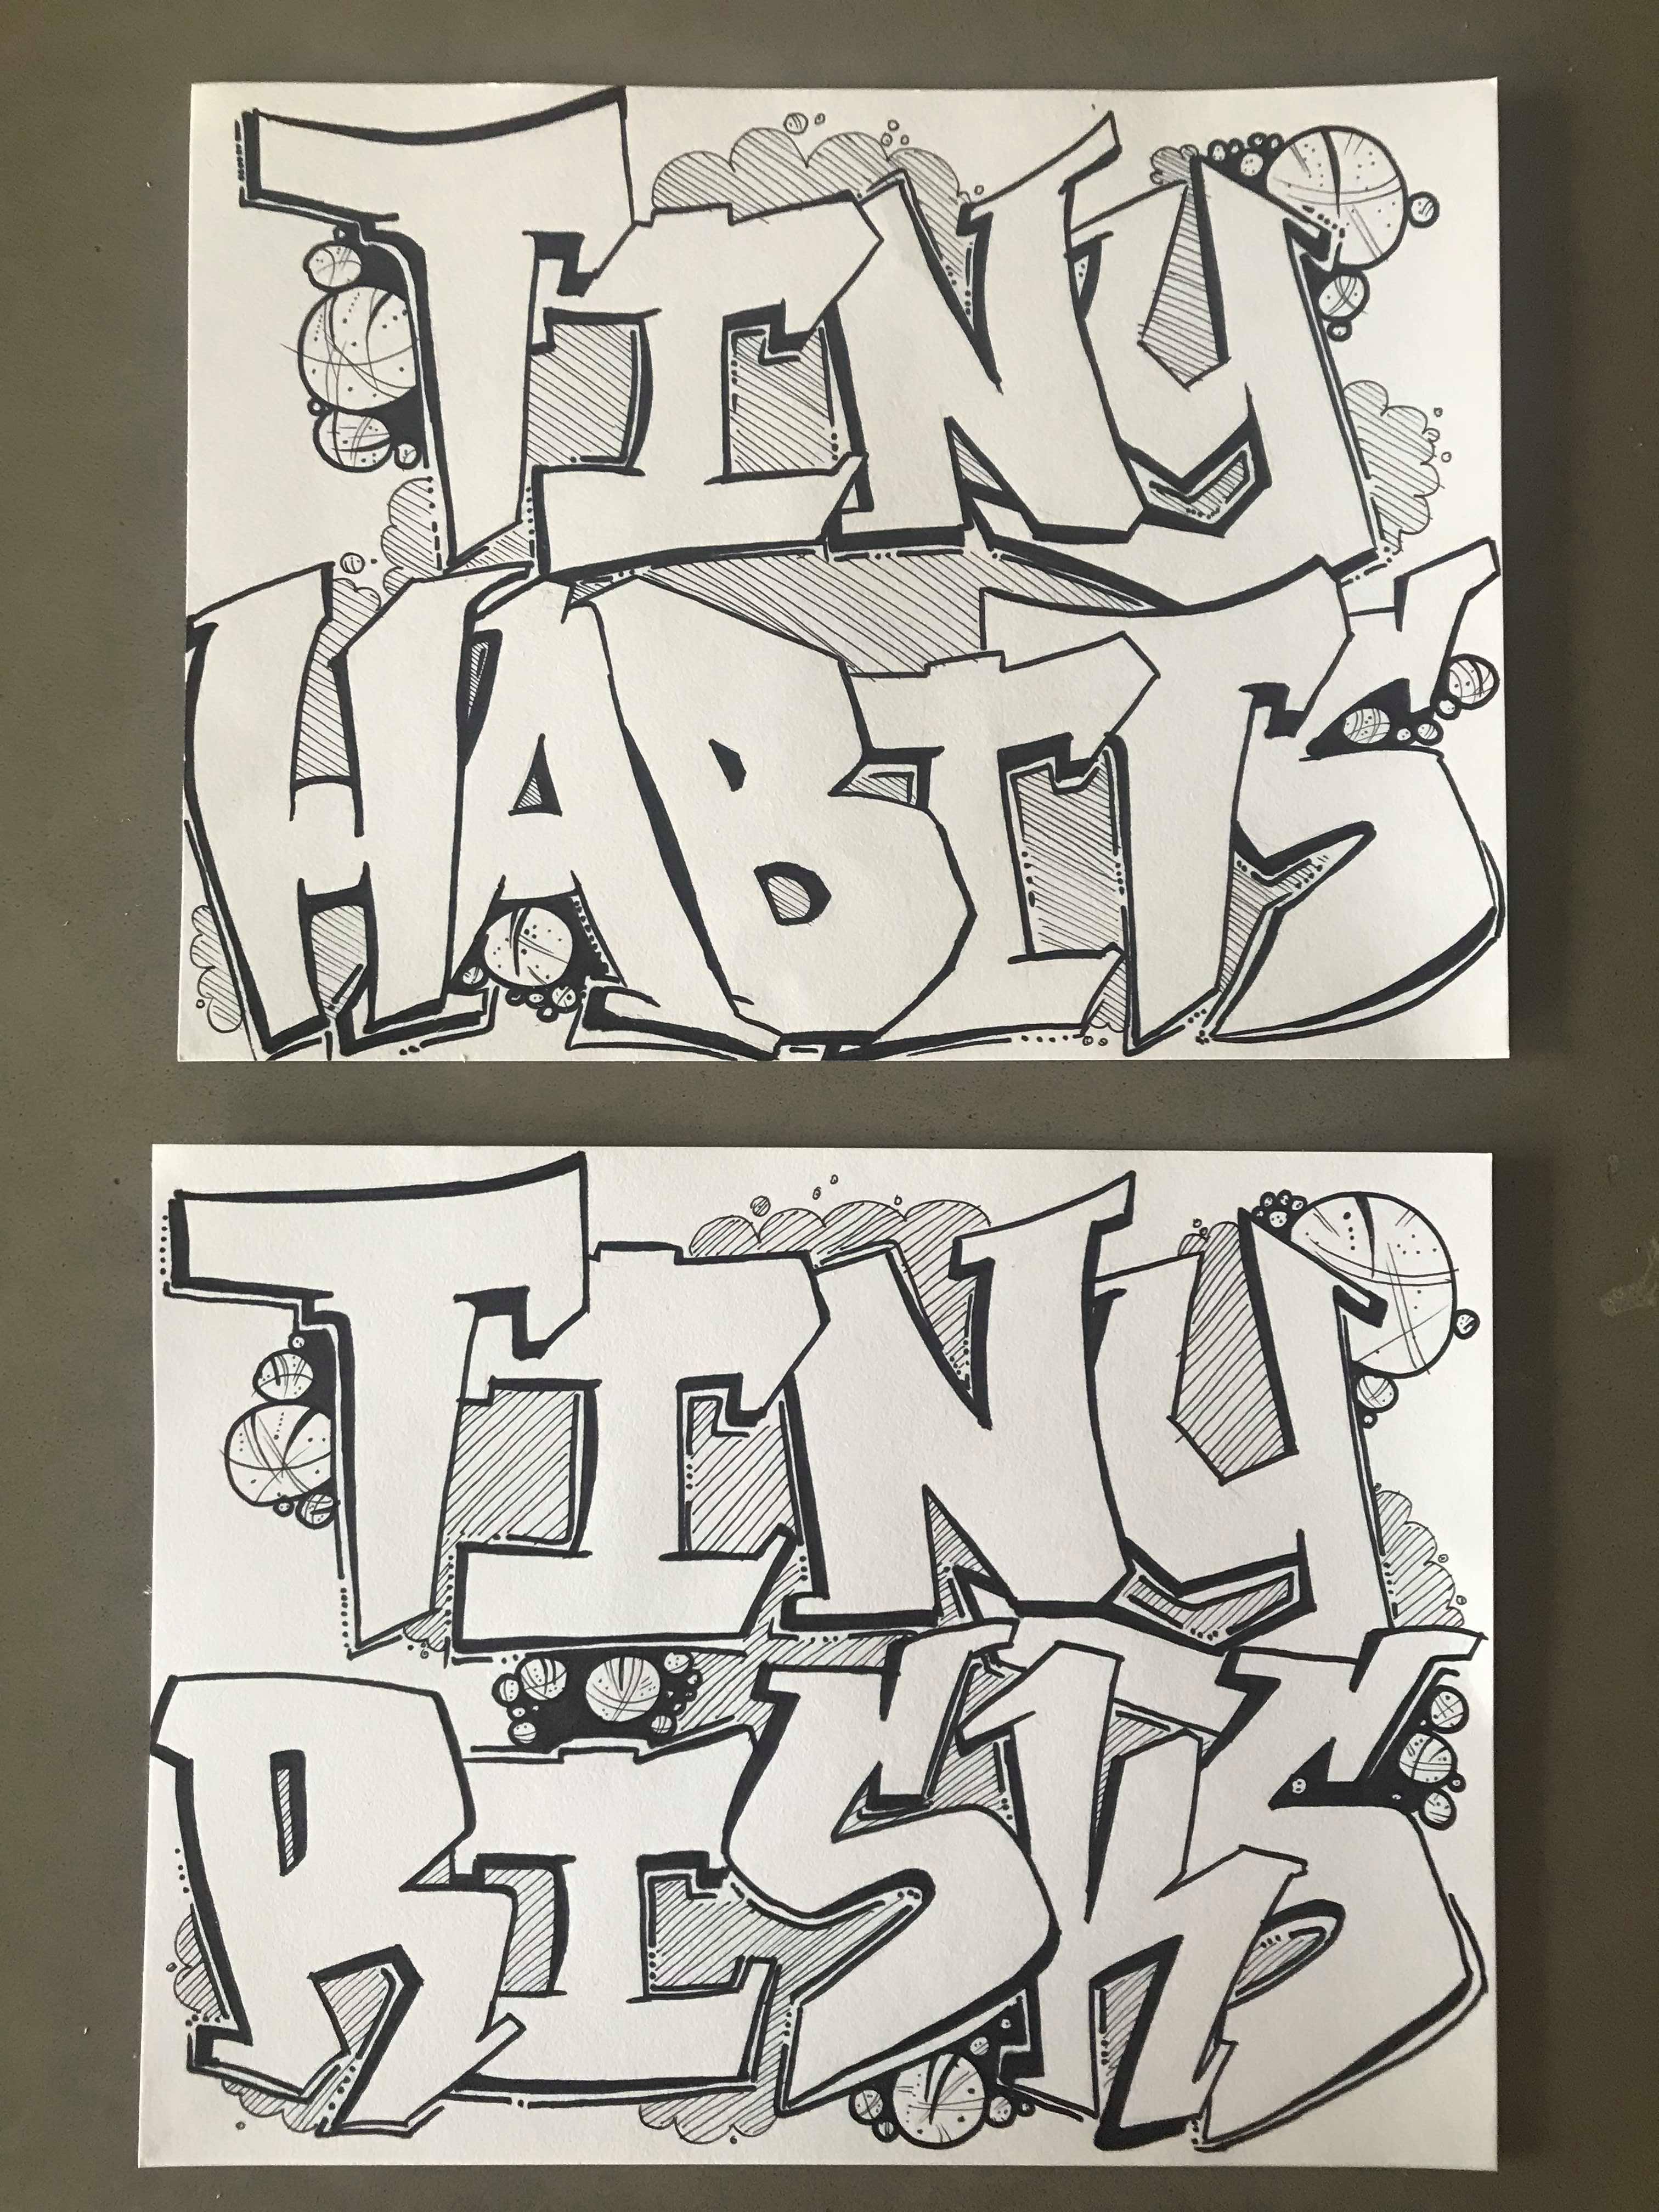 TINY
HABITS
TINY
RISKS